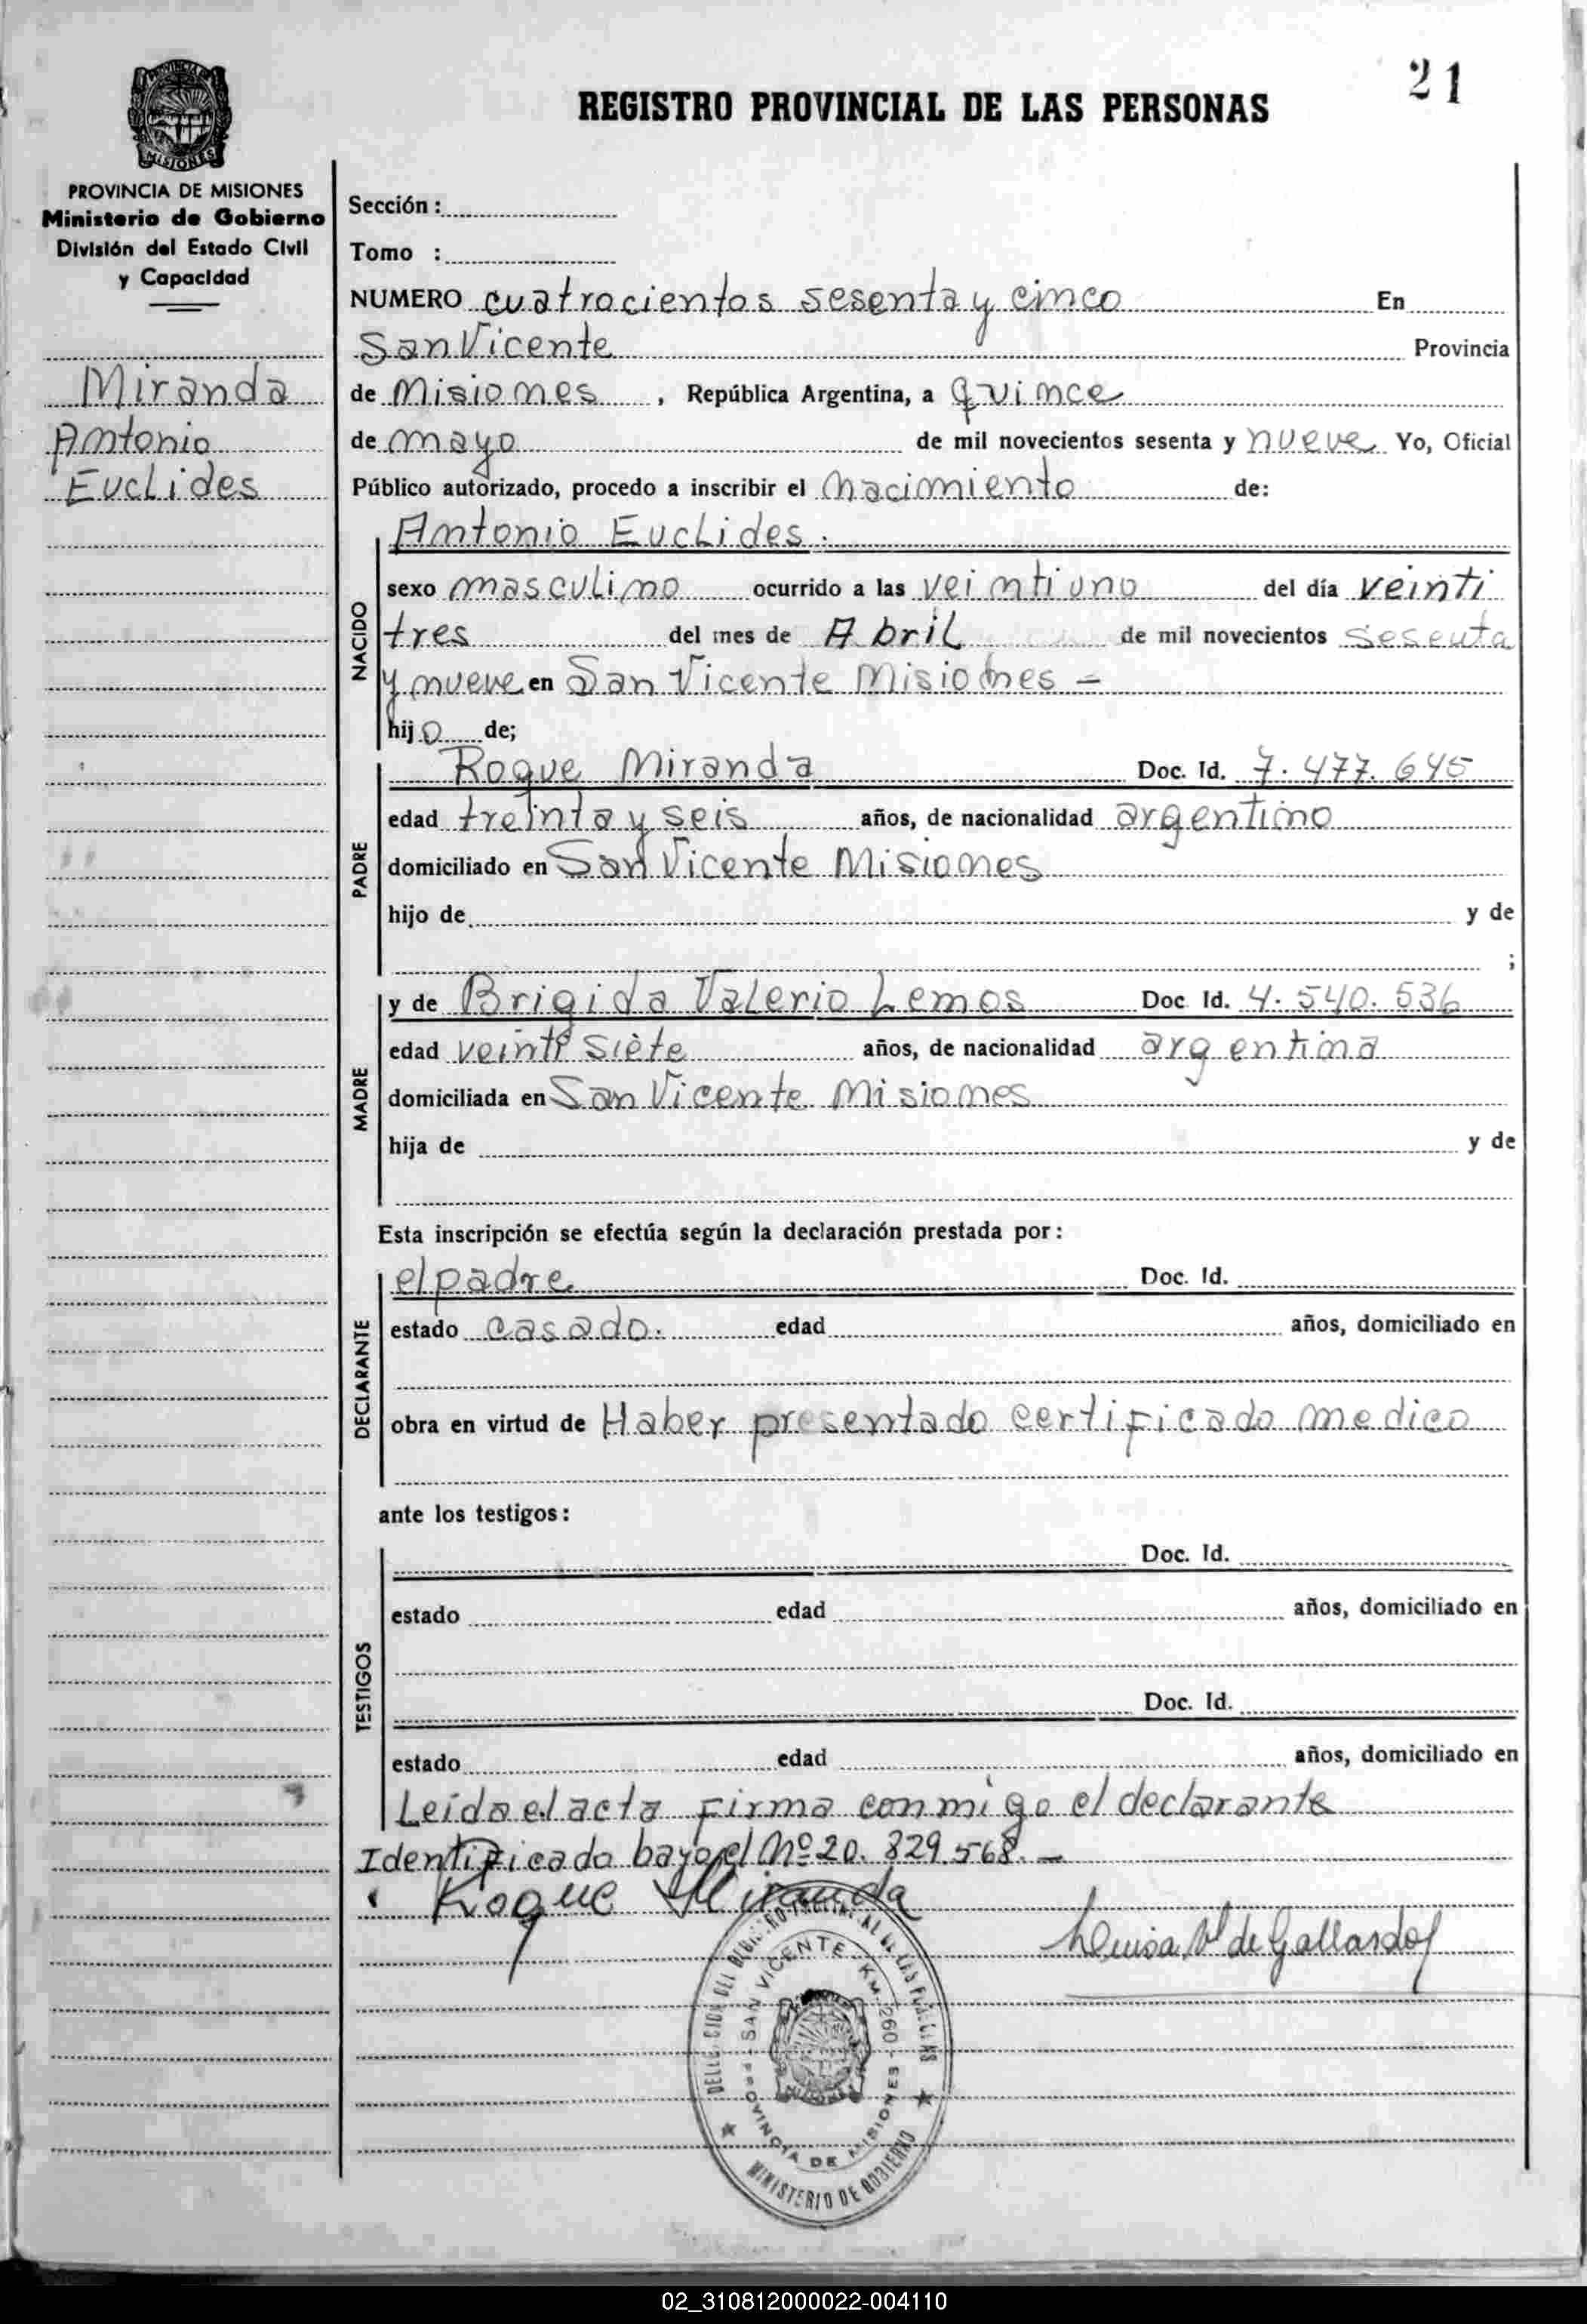 21
REGISTRO PROVINCIAL DE LAS PERSONAS
PROVINCIA DE
MISIONES
PROVINCIA DE MISIONES
Ministerio de Gobierno
División del Estado Civil
y Capacidad
Miranda
Antonio
Euclides
Sección :
Tomo :
NUMERO cuatrocientos sesenta y cinco En
San Vicente Provincia
de Misiones , República Argentina, a quince
de mayo de mil novecientos sesenta y nueve Yo, Oficial
Público autorizado, procedo a inscribir el nacimiento de:
NACIDO
Antonio Euclides.
sexo masculino ocurrido a las veintiuno del día veinti
tres del mes de Abril de mil novecientos sesenta
y nueve en San Vicente Misiones -
hijo de;
PADRE
Roque Miranda Doc. Id. 7.477.645
edad treinta y seis años, de nacionalidad argentino
domiciliado en San Vicente Misiones
hijo de y de
;
MADRE
y de Brigida Valerio Lemos Doc Id. 4.540.536
edad veinti siete años, de nacionalidad argentina
domiciliada en San Vicente Misiones
hija de y de
Esta inscripción se efectúa según la declaración prestada por :
DECLARANTE
el padre Doc. Id.
estado casado. edad años, domiciliado en
obra en virtud de Haber presentado certificado medico
ante los testigos :
TESTIGOS
Doc. Id.
estado edad años, domiciliado en
Doc. Id.
estado edad años, domiciliado en
Leida el acta firma conmigo el declarante
Identificado bayo el Nº 20.829.568. -
Roque Miranda
Luisa Vl de Gallardo
DELEGACION DEL REGISTRO PROVINCIAL DE LAS PERSONAS
SAN VICENTE KM. 260 - MISIONES
PROVINCIA DE MISIONES
MINISTERIO DE GOBIERNO
02_310812000022-004110